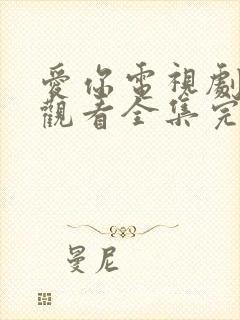 愛你電視劇
觀看全集完
曼尼